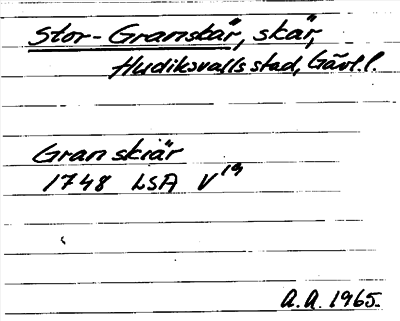 Stor-Granskär, skär,
Hudiksvalls stad, Gävl.l.
Granskiär
1748 LSA V 19
A.A. 1965.